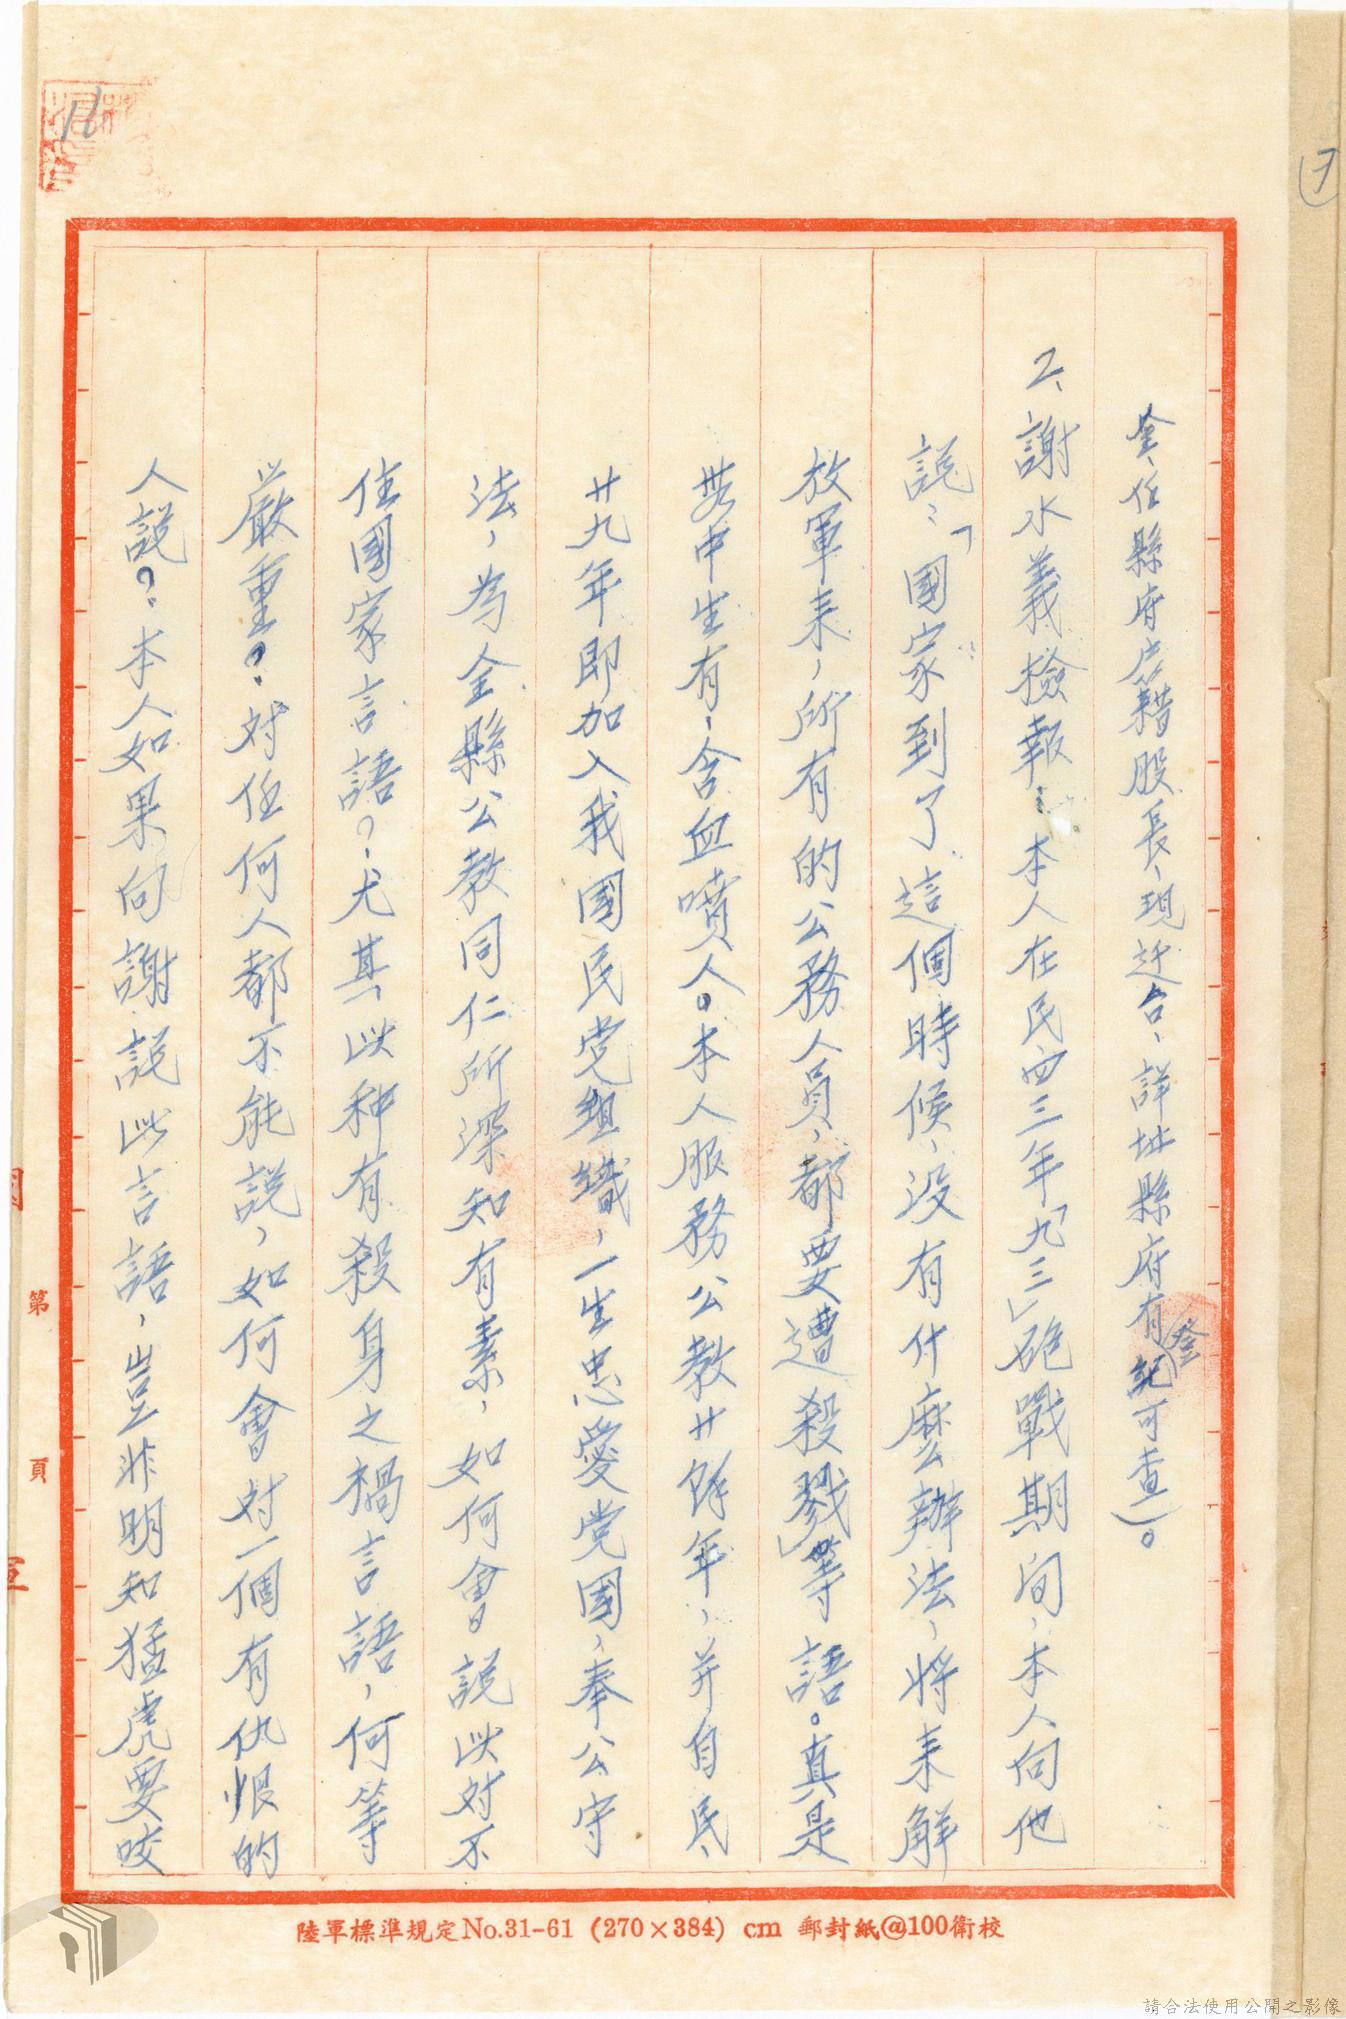 金、任縣府户籍股長、現迁台、詳址縣府有登記可查)。
2、謝水義檢報:本人在民四三年「九三」砲戰期间,本人向他
説:「國家到了這個時候,没有什麽辦法,將来解
放軍来,所有的公務人員,都要遭殺戮」等語。真是
無中生有,含血噴人。本人服務公教廿餘年,并自民
廿九年即加入我國民党組織,一生忠愛党國,奉公守
法,為金縣公教同仁所深知有素,如何會説此对不
住國家言語?尤其此种有殺身之禍言語,何等
嚴重?对任何人都不能説,如何會对一個有仇恨的
人説?本人如果向謝説此言語,豈非明知猛虎要咬
第
頁
陸軍標準規定No.31-61 (270×384) cm 郵封紙@100衛校
請合法使用公開之影像